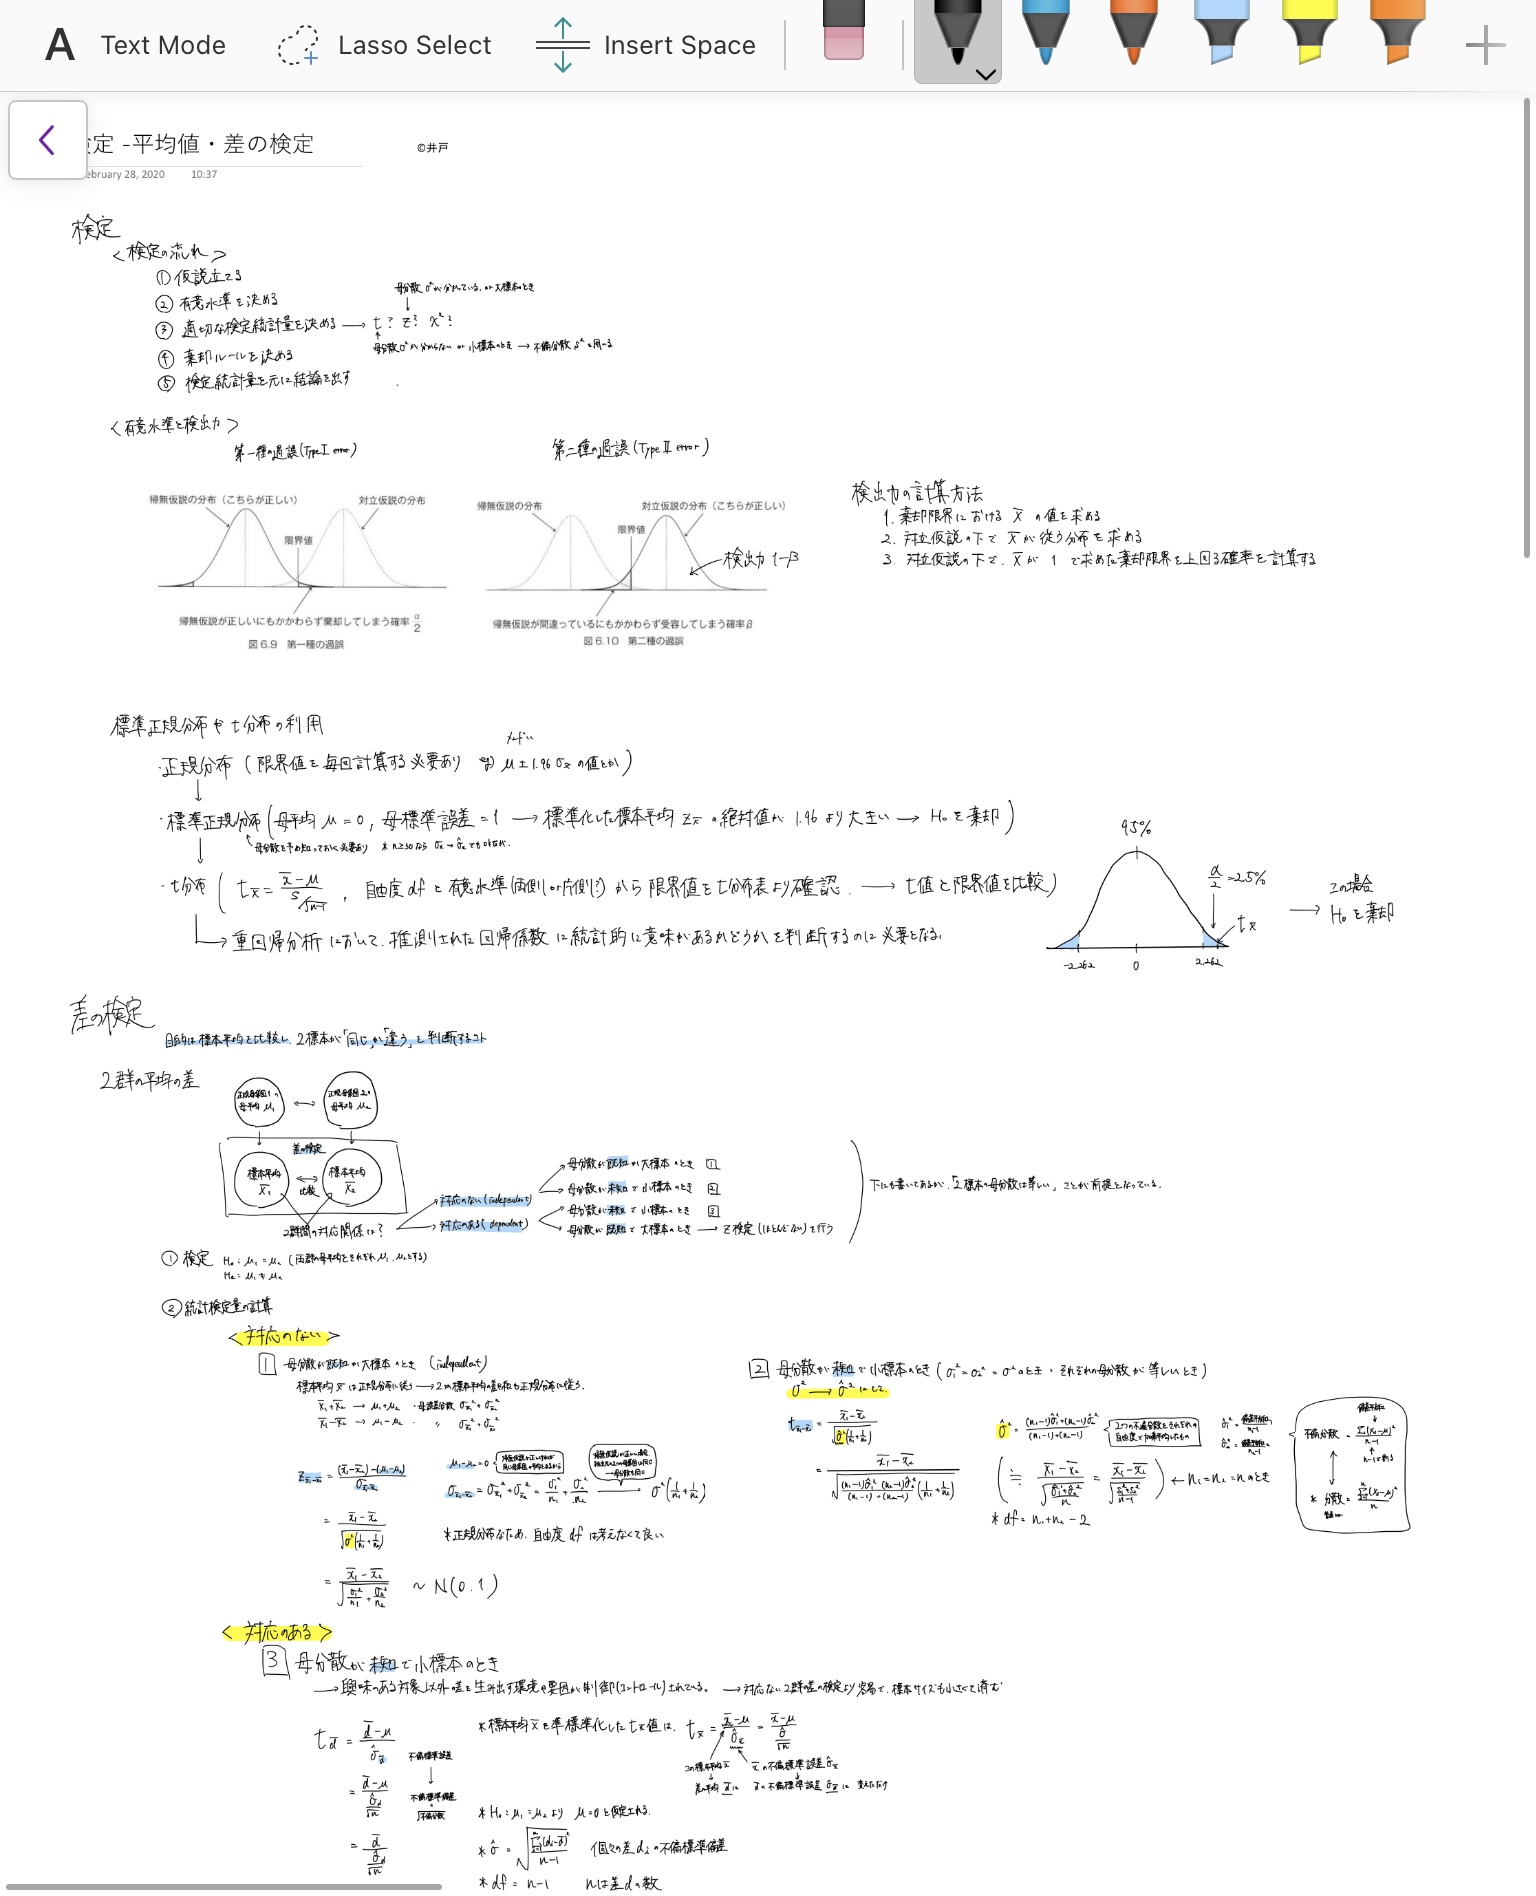 A Text Mode Lasso Select Insert Space
定 -平均値・差の検定 ©井戸
ebruary 28, 2020 10:37
検定
<検定の流れ>
① 仮説立てる
② 有意水準を決める
母分散σ²が分かっている or 大標本のとき
③ 適切な検定統計量を決める → t? z? χ²?
母分散σ²が分からない or 小標本のとき → 不偏分散 s²を用いる
④ 棄却ルールを決める
⑤ 検定統計量を元に結論を出す
<有意水準と検出力>
第一種の過誤(Type I error) 第二種の過誤(Type II error)
帰無仮説の分布(こちらが正しい) 対立仮説の分布
限界値
帰無仮説が正しいにもかかわらず棄却してしまう確率 α/2
図6.9 第一種の過誤
帰無仮説の分布 対立仮説の分布(こちらが正しい)
限界値
検出力 1-β
帰無仮説が間違っているにもかかわらず受容してしまう確率β
図6.10 第二種の過誤
検出力の計算方法
1. 棄却限界における x̄ の値を求める
2. 対立仮説の下で x̄ が従う分布を求める
3. 対立仮説の下で、x̄ が 1 で求めた棄却限界を上回る確率を計算する
標準正規分布や t分布の利用
・正規分布 (限界値を毎回計算する必要あり μ±1.96σx̄ の値とか)
・標準正規分布 (母平均 μ=0, 母標準誤差=1 → 標準化した標本平均 zx̄ の絶対値が 1.96 より大きい → H₀を棄却)
母分散を予め知っておく必要あり
・t分布 (tx̄ = x̄-μ / s/√n-1 , 自由度 df と有意水準(両側 or 片側?) から限界値を t分布表より確認. → t値と限界値を比較)
→ 重回帰分析において、推測された回帰係数に統計的に意味があるかどうかを判断するのに必要となる.
95%
α/2=2.5%
tx̄
-2.262 0 2.262
→ この場合 H₀を棄却
差の検定
目的は標本平均を比較し、2標本が「同じ」か「違う」を判断するコト
2群の平均の差
正規母集団1の 母平均 μ₁ ↔ 正規母集団2の 母平均 μ₂
差の検定
標本平均 x̄₁ ↔ 比較 標本平均 x̄₂
2群間の対応関係は?
対応のない(independent)
対応のある(dependent)
母分散が既知か大標本のとき 1
母分散が未知で小標本のとき 2
母分散が未知で小標本のとき 3
母分散が既知で大標本のとき → z検定(ほとんどない)を行う
下にも書いてあるが、「2標本の母分散は等しい」ことが前提となっている.
① 検定 H₀: μ₁=μ₂ (両群の母平均をそれぞれ μ₁, μ₂とする)
② 統計検定量の計算
<対応のない>
1 母分散が既知か大標本のとき (independent)
標本平均x̄は正規分布に従う → 2つの標本平均の差も和も正規分布に従う.
x̄₁+x̄₂ → μ₁+μ₂ ・母誤差分散 σx̄₁²+σx̄₂²
x̄₁-x̄₂ → μ₁-μ₂ ・ 〃 σx̄₁²+σx̄₂²
zx̄₁-x̄₂ = (x̄₁-x̄₂)-(μ₁-μ₂) / σx̄₁-x̄₂
μ₁-μ₂=0
σx̄₁-x̄₂ = σx̄₁²+σx̄₂² = σ₁²/n₁ + σ₂²/n₂ → σ²(1/n₁+1/n₂)
= x̄₁-x̄₂ / √σ²(1/n₁+1/n₂)
*正規分布なため、自由度 df は考えなくて良い
= x̄₁-x̄₂ / √σ₁²/n₁+σ₂²/n₂ ~ N(0.1)
2 母分散が未知で小標本のとき (σ₁²=σ₂²=σ²のとき : それぞれの母分散が等しいとき)
σ² → σ̂² にして.
tx̄₁-x̄₂ = x̄₁-x̄₂ / √σ̂²(1/n₁+1/n₂)
σ̂² = (n₁-1)σ̂₁²+(n₂-1)σ̂₂² / (n₁-1)+(n₂-1)
2つの不偏分散をそれぞれの自由度で加重平均したもの
= x̄₁-x̄₂ / √(n₁-1)σ̂₁²+(n₂-1)σ̂₂² / (n₁-1)+(n₂-1) (1/n₁+1/n₂)
(≒ x̄₁-x̄₂ / √σ̂₁²+σ̂₂² / n = x̄₁-x̄₂ / √s₁²+s₂² / n-1) ← n₁=n₂=nのとき
*df = n₁+n₂-2
不偏分散 = Σ(xᵢ-μ)² / n-1
* 分散 = Σ(xᵢ-μ)² / n
<対応のある>
3 母分散が未知で小標本のとき
→ 興味のある対象以外の差を生み出す環境や要因が制御(コントロール)されている。 → 対応ない2群の差の検定より容易で、標本サイズも小さくて済む
td̄ = d̄-μ / σ̂d̄
不偏標準誤差
*標本平均x̄を準標準化した tx̄値は. tx̄ = x̄-μ / σ̂x̄ = x̄-μ / σ̂/√n
この標本平均x̄ x̄の不偏標準誤差 σ̂x̄
差の平均 d̄に d̄の不偏標準誤差 σ̂d̄ に 変えただけ
= d̄-μ / σ̂d/√n
不偏標準偏差
√不偏分散
*H₀: μ₁=μ₂ より μ=0と仮定される.
= d̄ / σ̂d/√n
*σ̂ = √Σ(dᵢ-d̄)² / n-1 個々の差dᵢの不偏標準偏差
*df = n-1 nは差dの数